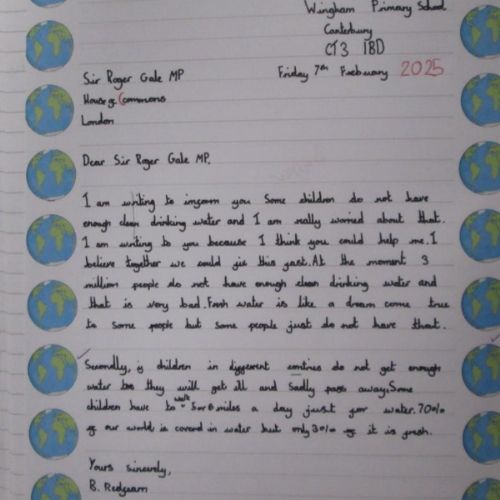 Wingham Primary School
Canterbury
CT3 1BD
Sir Roger Gale MP
Friday 7th Faebuary 2025
House of Commons
London
Dear Sir Roger Gale MP,
I am writing to inform you Some children do not have
enough clean drinking water and I am really worried about that.
I am writing to you because I think you could help me. I
believe together we could fix this fast. At the moment 3
million people do not have enough clean drinking water and
that is very bad. Fresh water is like a dream come true
to some people but some people just do not have that.
Secondly, if children in different contries do not get enough
water they will get ill and Sadly pass away. Some
children have to walk 5 or 6 miles a day just for water. 70%
of our world is coverd in water but only 3% of it is fresh.
Yours sincerely,
B. Redfearn